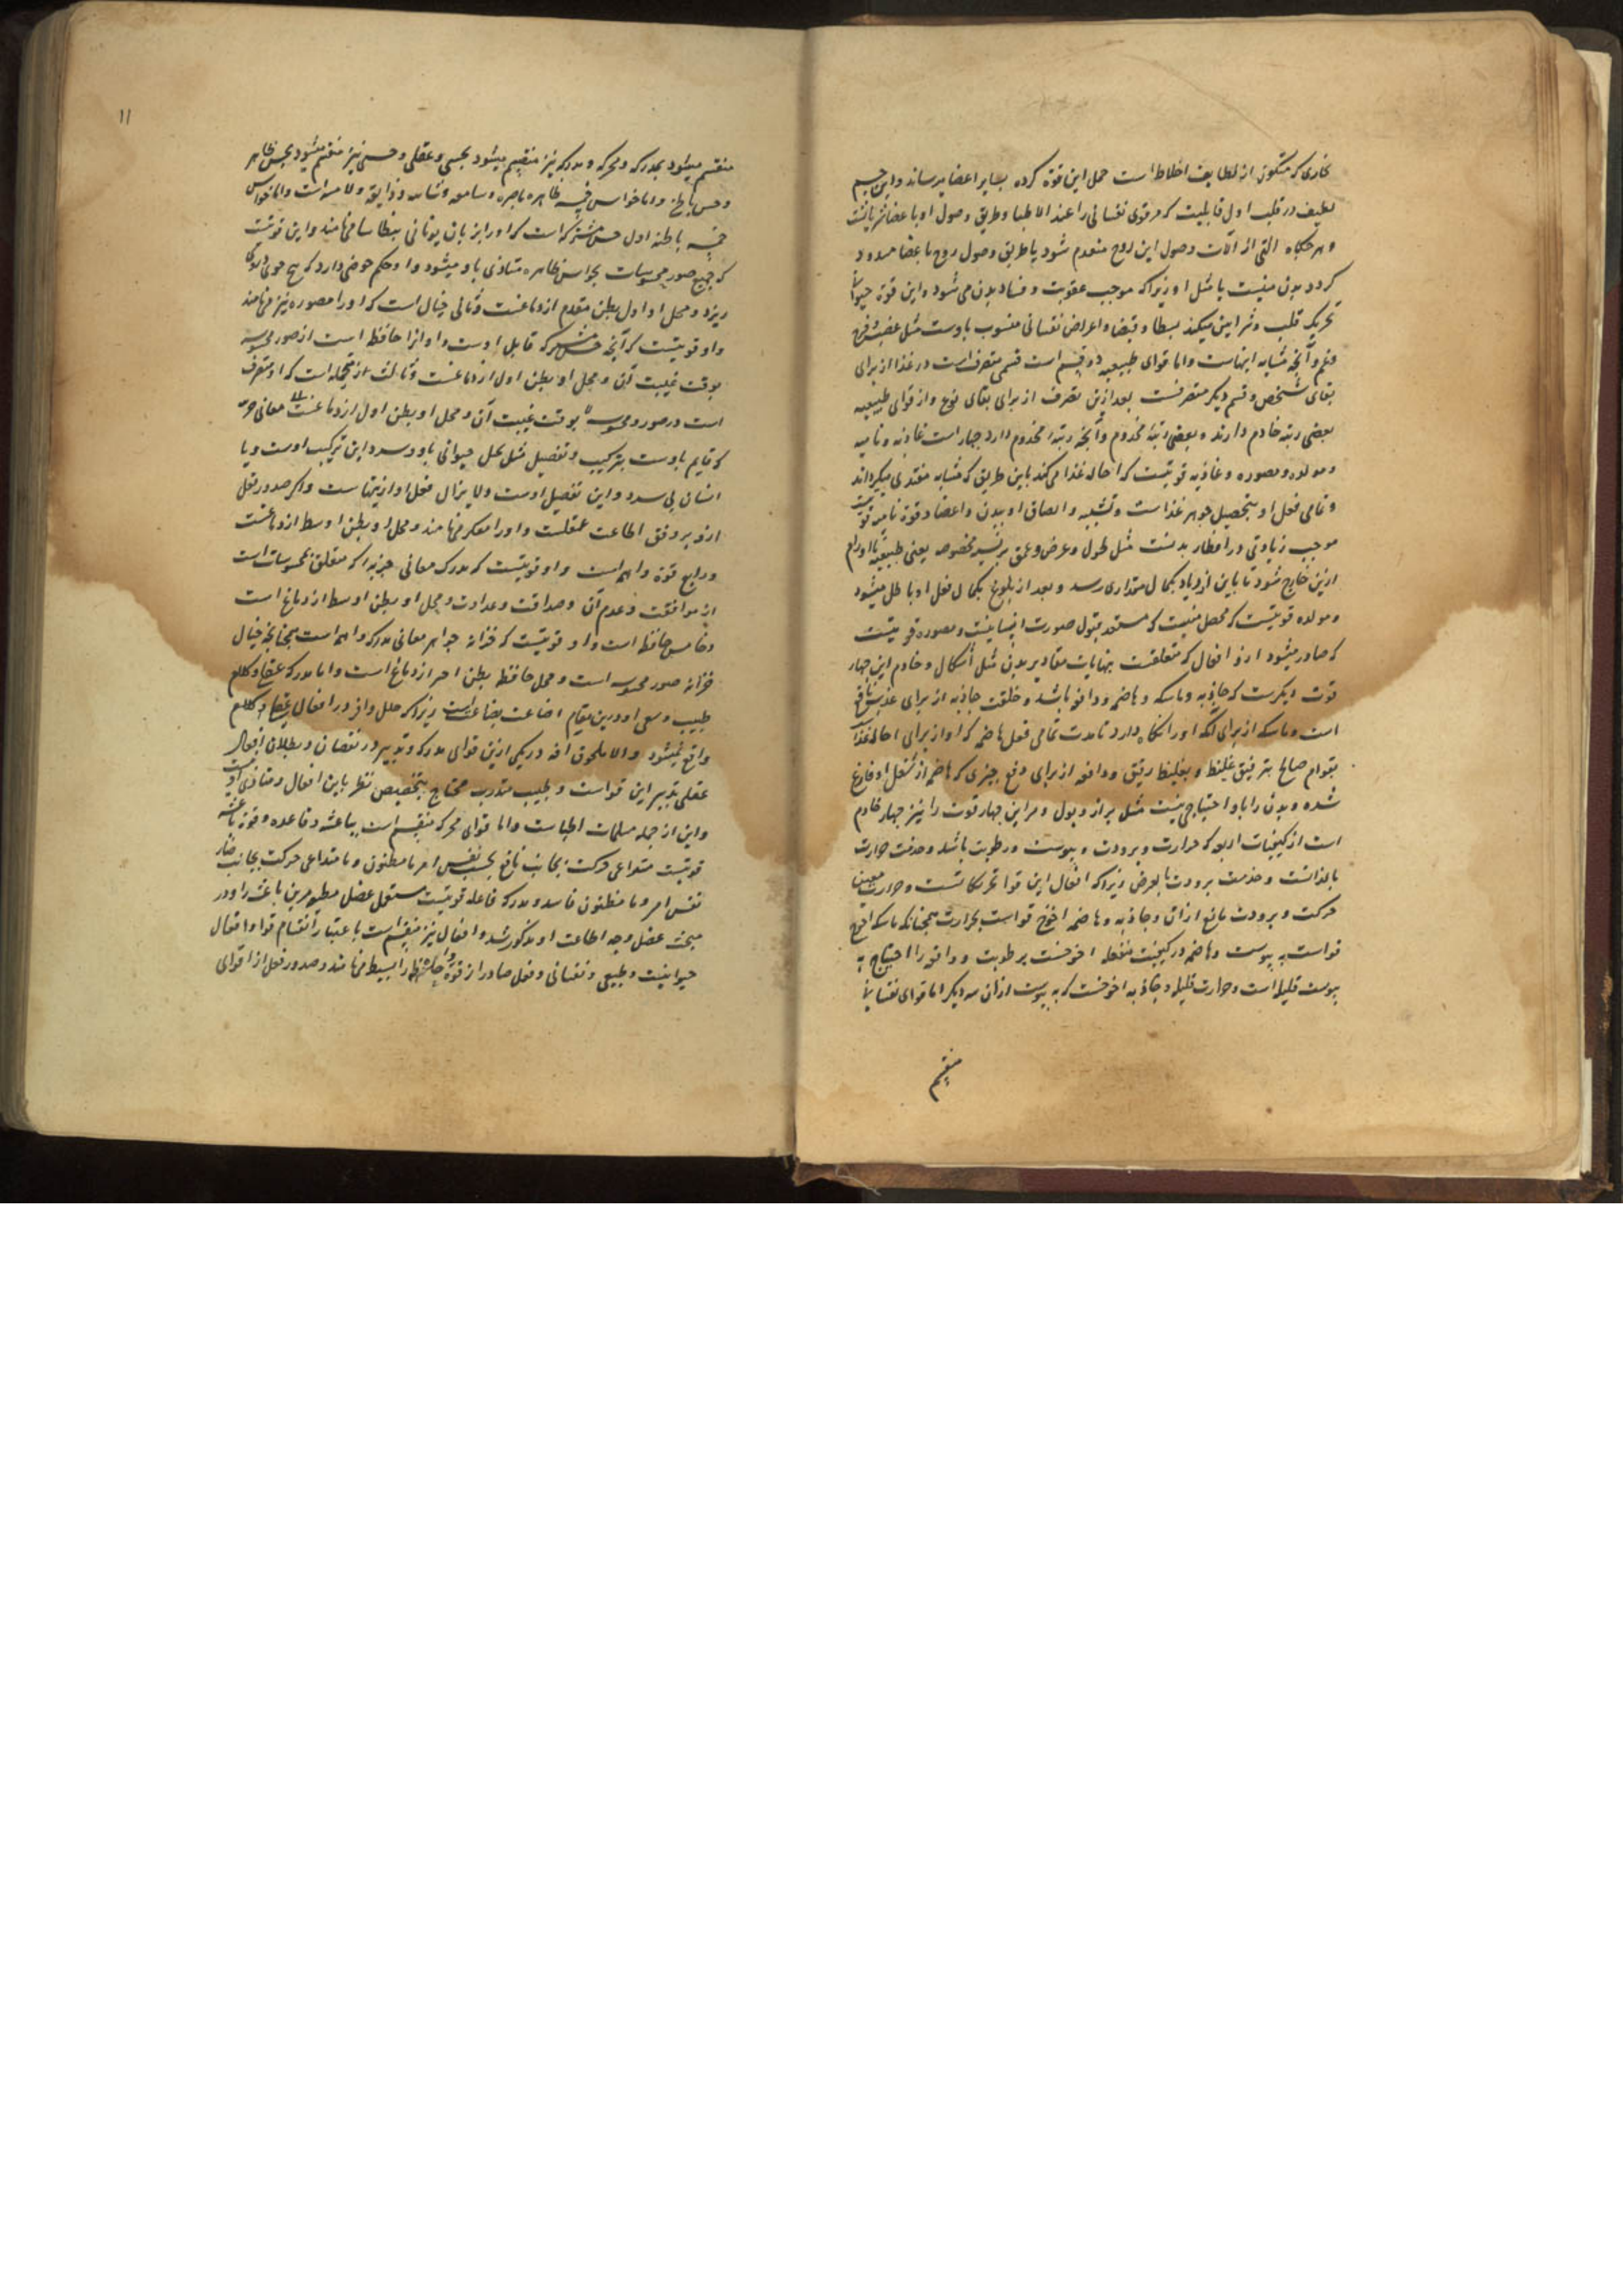 بخاری که متکون از لطایف اخلاط است حمل این قوة کرده بسایر اعضا میرساند و این جسم
لطیف در قلب اول قابلیت که مر قوی نفسانی را عند الاطبا و طریق وصول او باعضا شریانست
و هرگاه التی از آلات وصول این روح منعدم شود یا طریق وصول روح باعضا مسدود
کردد بدن میت یا مثل او زیرا که موجب عفونت و فساد بدن می شود و این قوة
تحریک قلب و شرایین میکند بسطا و قبضا و اعراض نفسانی منسوب باوست مثل غضب و فرح
و غم و آنچه مشابه اینهاست و اما قوای طبیعیه دو قسم است قسمی متصرفست در غذا از برای
بقای شخص و قسم دیگر متصرفست بعد ازین تصرف از برای بقای نوع و از قوای طبیعیه
بعضی رتبه خادم دارند و بعضی رتبه مخدوم و آنچه رتبه مخدوم دارد چهار است غاذیه و نامیه
و مولده و مصوره و غاذیه قوتیست که احاله غذا می کند باین طریق که مشابه مغتذی میکرداند
و تمامی فعل او بتحصیل جوهر غذاست و تشبیه و الصاق او ببدن و اعضا و قوة نامیه
موجب زیادتی در اقطار بدنست مثل طول و عرض و عمق بر نسبت مخصوصه یعنی طبیعیه تا اورام
ازین خارج شود تا باین ازدیاد بکمال مقداری رسد و بعد از بلوغ بکمال فعل او باطل میشود
و مولده قوتیست که محصل منیست که مستعد قبول صورت انسانیست و مصوره قوتیست
که صادر میشود ازو افعال که متعلقست بنهایات مقادیر بدن مثل اشکال و خادم این چهار
قوت دیکرست که جاذبه و ماسکه و هاضمه و دافعه باشد و خلقت جاذبه از برای جذب نافع
است و ماسکه از برای آنکه او را نکاه دارد تا مدت تمامی فعل هاضمه که او از برای احاله غذاست
بقوام صالح بترقیق غلیظ و بغلیظ رقیق و دافعه از برای دفع چیزی که هاضمه از شغل او فارغ
شده و بدن را باو احتیاجی نیست مثل براز و بول و مر این چهار قوت را نیز چهار خادم
است از کیفیات اربعه که حرارت و برودت و یبوست و رطوبت باشد و خدمت حرارت
بالذاتست و خدمت برودت بالعرض زیرا که افعال این قوا تحریکاتست و حرارت معین
حرکت و برودت مانع از آن و جاذبه و هاضمه احوج قواست بحرارت همچنانکه ماسکه احوج
قواست به یبوست و هاضمه در کیفیت منفعله احوجست برطوبت و دافعه را احتیاج به
یبوست قلیله است و حرارت قلیله و جاذبه احوجست که به یبوست از آن سه دیکر اما قوای نفسانی
منقسم
۱۱
منقسم میشود بمدرکه و محرکه و مدرکه نیز منقسم میشود بحسی و عقلی و حسی نیز منقسم میشود بحس ظاهر
و حس باطن و اما حواس خمسه ظاهره باصره و سامعه و شامه و ذایقه و لامسه است و اما حواس
خمسه باطنه اول حس مشترکه است که او را بزبان یونانی بنطاسیا می نامند و این قوتیست
که جمیع صور محسوسات بحواس ظاهره متادی باو میشود و او حکم حوضی دارد که
ریزد و محل او اول بطن مقدم از دماغست و ثانی خیال است که او را مصوره نیز می نامند
و او قوتیست که آنچه حس مشترکه قابل اوست و او آنرا حافظ است از صور محسوسه
بوقت غیبت آن و محل او بطن اول از دماغست و ثالث متخیله است که او متصرف
است در صور محسوسه بوقت غیبت آن و محل او بطن اول از دماغست معانی
که قایم باوست بترکیب و تفصیل مثل حیوانی باو سر و این ترکیب اوست و یا
انسان بی سر و این تفصیل اوست و لا یزال فعل او از اینهاست و اکر صدور فعل
ازو بر وفق اطاعت عقلست او را مفکره می نامند و محل او بطن اوسط از دماغست
و رابع قوة واهمه است و او قوتیست که مدرک معانی جزییه که متعلق بمحسوسات است
از موافقت و عدم آن و صداقت و عداوت و محل او بطن اوسط از دماغ است
و خامس حافظه است و او قوتیست که خزانه جواهر معانی مدرکه واهمه است همچنانچه خیال
خزانه صور محسوسه است و محل حافظه بطن اخر از دماغ است و اما مدرکه
طبیب و سعی او درین مقام اضاعت بضاعت است زیرا که خلل وافر در افعال
واقع نمیشود والا بلحوق آفه در یکی ازین قوای مدرکه و تدبیر در نقصان و بطلان افعال
عقلی بتدبیر این قواست و طبیب متدرب محتاج بتخصیص نظر باین افعال
و این از جمله مسلمات اطباست و اما قوای محرکه منقسم است بباعثه و فاعله و قوة باعثه
قوتیست متداعی حرکت بجانب نافع بحسب نفس امر یا مظنون و یا متداعی حرکت بجانب ضار
نفس امر و یا مظنون فاسد و مدرکه فاعله قوتیست مستعمل عضل مطیع مر این باعثه را و در
مبحث عضل وجه اطاعت او مذکور شد و افعال نیز منقسم است باعتبار انقسام قوا و افعال
حیوانیست و طبیعی و نفسانی و فعل صادر از قوة واحده را بسیط می نامند و صدور فعل از قوای